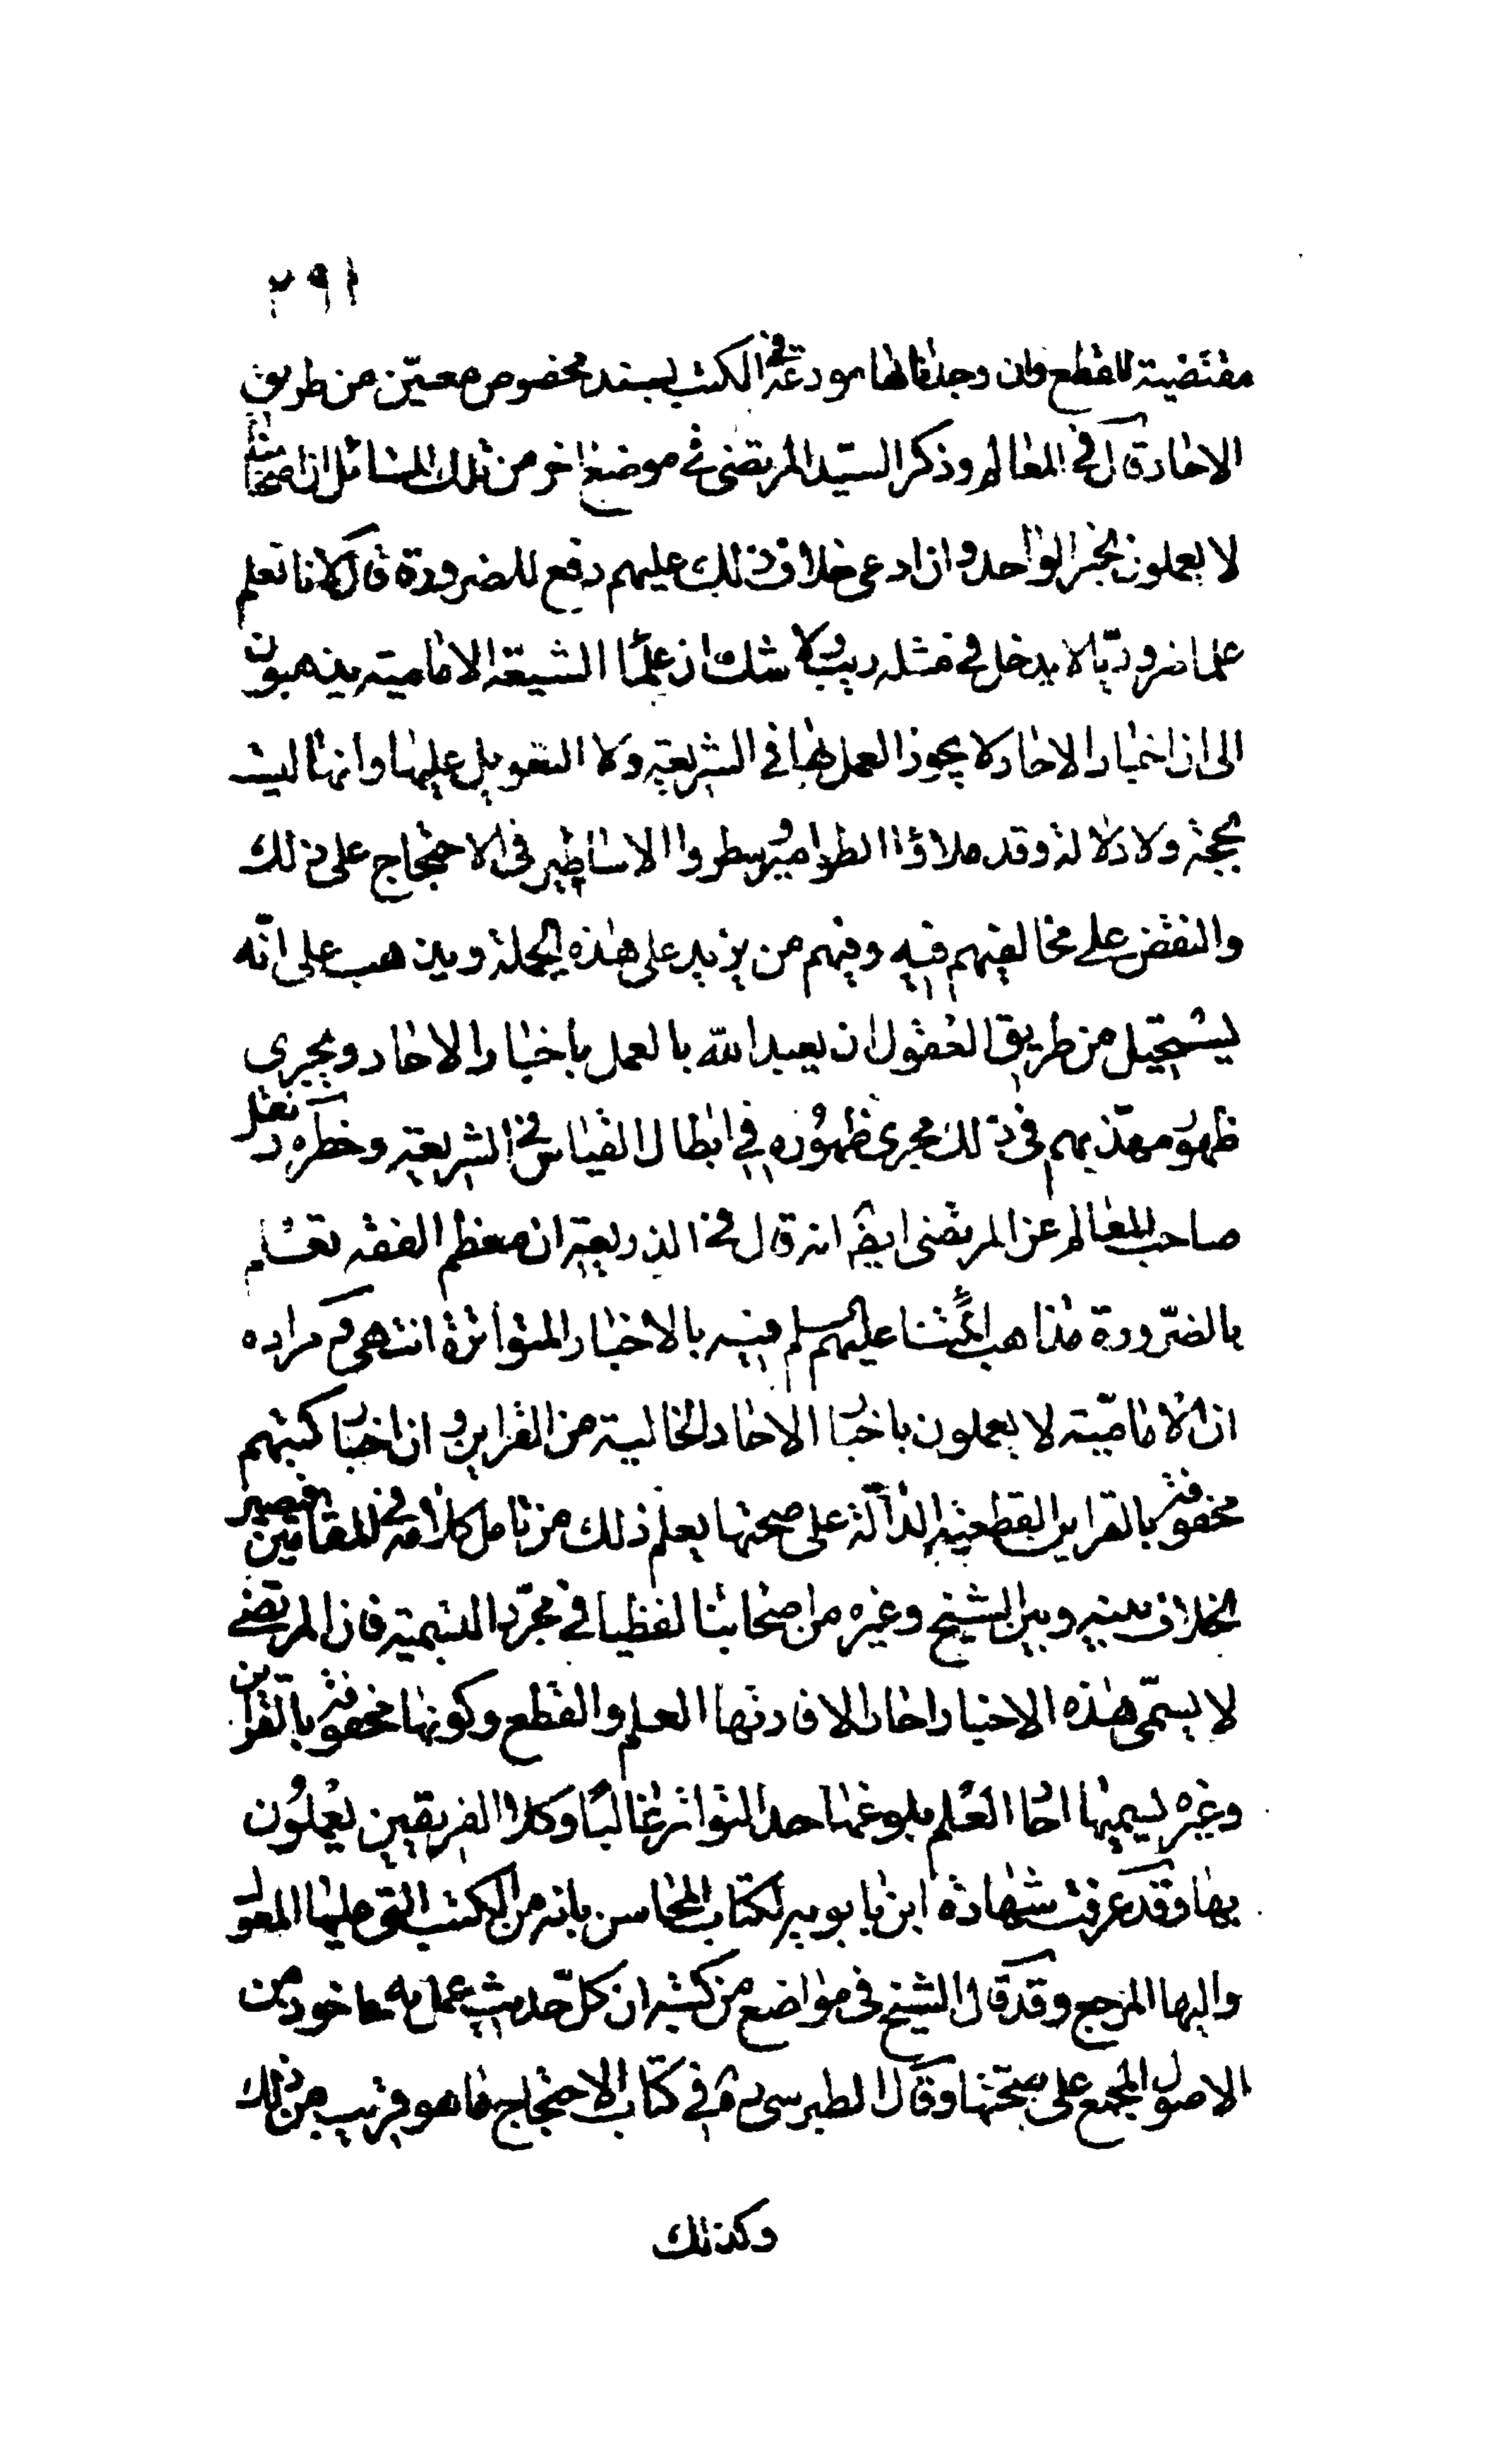 ٢٩١
مقتضية للقطع وان وجدناها مودعة في الكتب بسند مخصوص معين من طريق
الاحاد قال في المعالم وذكر السيد المرتضى في موضع اخر من تلك المسائل ان اصحابنا
لا يعملون بخبر الواحد وان ادعى خلاف ذلك عليهم دفع للضرورة قال لانا نعلم
علما ضروريا لا يدخل في مثله ريب ولا شك ان علما الشيعة الامامية يذهبون
الى ان اخبار الاحاد لا يجوز العمل بها في الشريعة ولا التعويل عليها وانها ليست
بحجة ولا دلالة وقد ملاؤا الطوامير وسطروا الاساطير في الاحتجاج على ذلك
والنقض على مخالفيهم فيه ومنهم من يزيد على هذه الجملة ويذهب على انّه
يستحيل من طريق العقول ان يعبد الله بالعمل باخبار الاحاد ويجرى
ظهور مذهبهم في ذلك مجرى ظهوره في ابطال القياس في الشريعة وحظره ونقل
صاحب المعالم عن المرتضى ايضا انه قال في الذريعة ان معظم الفقه تعلم
بالضّرورة مذاهب ائمّتنا عليهم السلم فيه بالاخبار المتواترة انتهى و مراده
ان الامامّية لا يعملون باخبار الاحاد الخالية من القراين وان اخبار كتبهم
محفوفة بالقراين القطعية الدّالّة على صحتها يعلم ذلك من تامل كلامه في المقامين فيصير
الخلاف بينه وبين الشيخ وغيره من اصحابنا لفظيا في مجرّد التسمية فان المرتضى
لا يسمّى هذه الاخبار احاد الافادتها العلم والقطع وكونها محفوفة بالقراين
وغيره يسميها احاد العلم بلوغها حد التواتر غالبًا وكلا الفريقين يعملون
بها وقد عرفت شهادة ابن بابويه لكتاب المحاسن بانه من الكتب التي عليها المعول
واليها المرجع وقد قال الشيخ في مواضع من كتبه ان كلّ حديث عمل به ماخوذ من
الاصول المجمع على صحّتها وقال الطبرسى ره في كتاب الاحتجاج ما هو قريب من ذلك
وكذلك